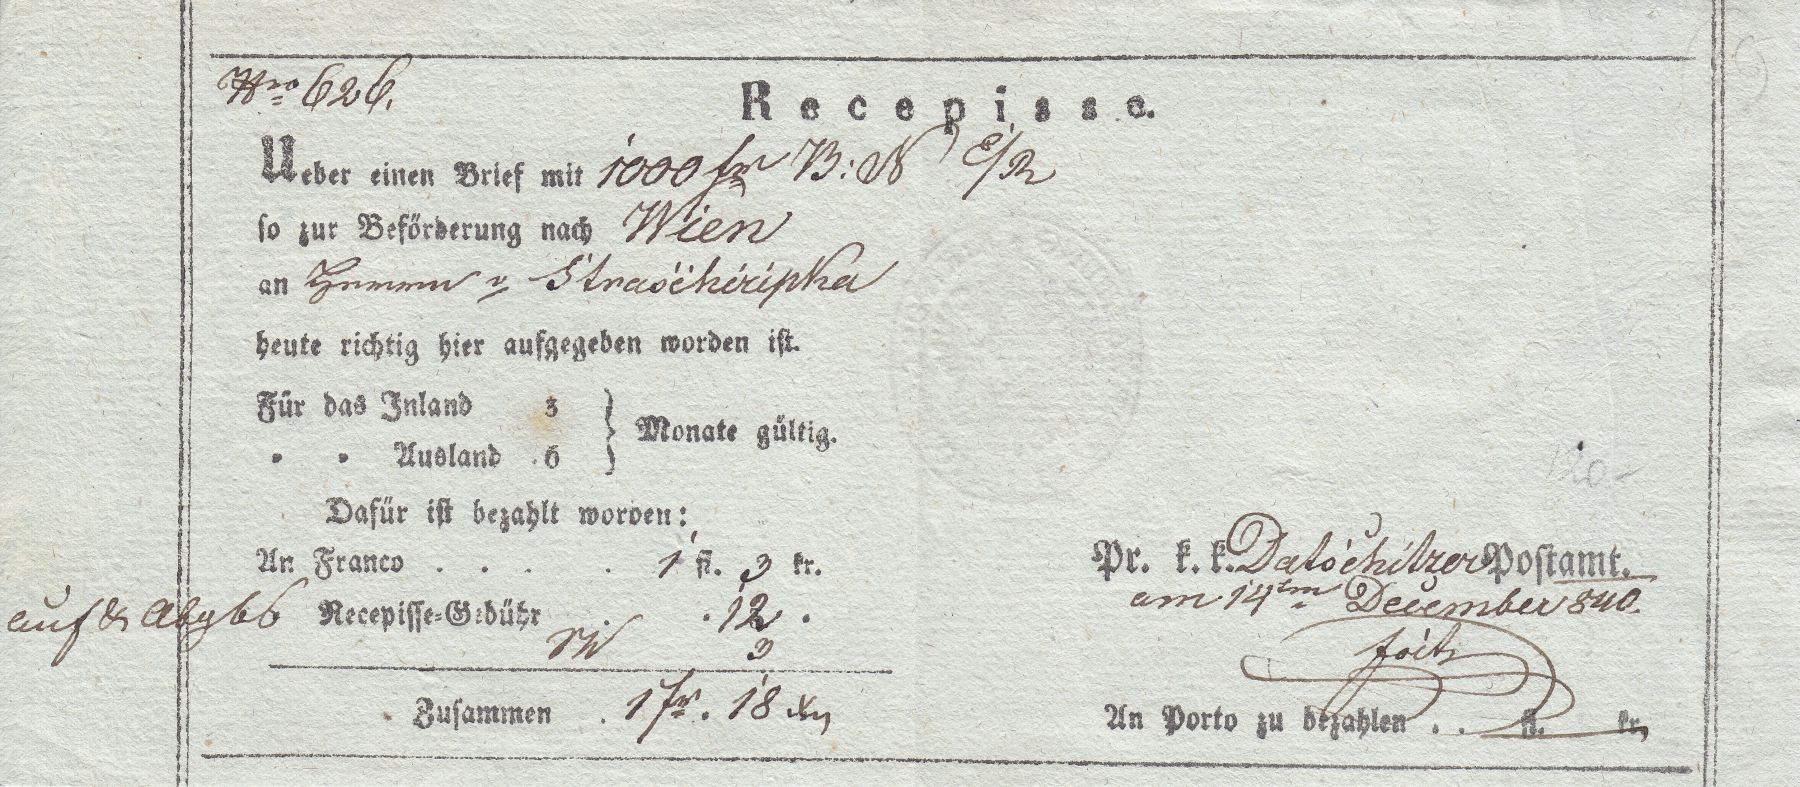 Nro 626.
Recepisse.
Ueber einen Brief mit 1000 fr B: N
so zur Beförderung nach Wien
an Herrn v Straschiripka
heute richtig hier aufgegeben worden ist.
Für das Inland 3
" " Ausland 6
} Monate gültig.
Dafür ist bezahlt worden:
An Franco . . . . 1 fl. 3 kr.
auf & Abgbs Recepisse-Gebühr . . 12 .
3
Zusammen . 1 fr. 18 Xr
Pr. k. k. Datschitzer Postamt.
am 14ten December 840.
An Porto zu bezahlen . . fl. kr.
120-